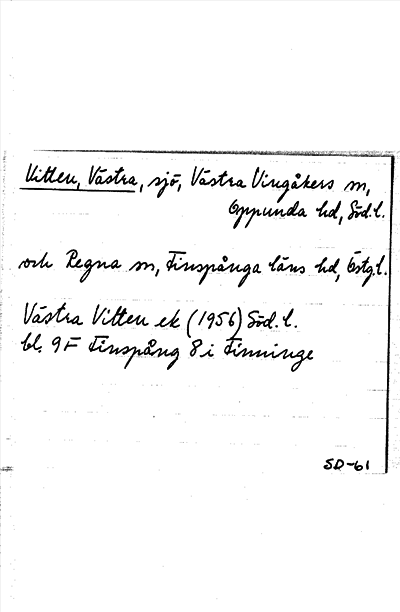 Vitten, Västra, sjö, Västra Vingåkers sn,
Oppunda hd, Söd.l.
och Regna sn, Finspånga läns hd, Östg.l.
Västra Vitten ek (1956) Söd.l.
bl. 9F Finspång 8i Finninge
SD-61